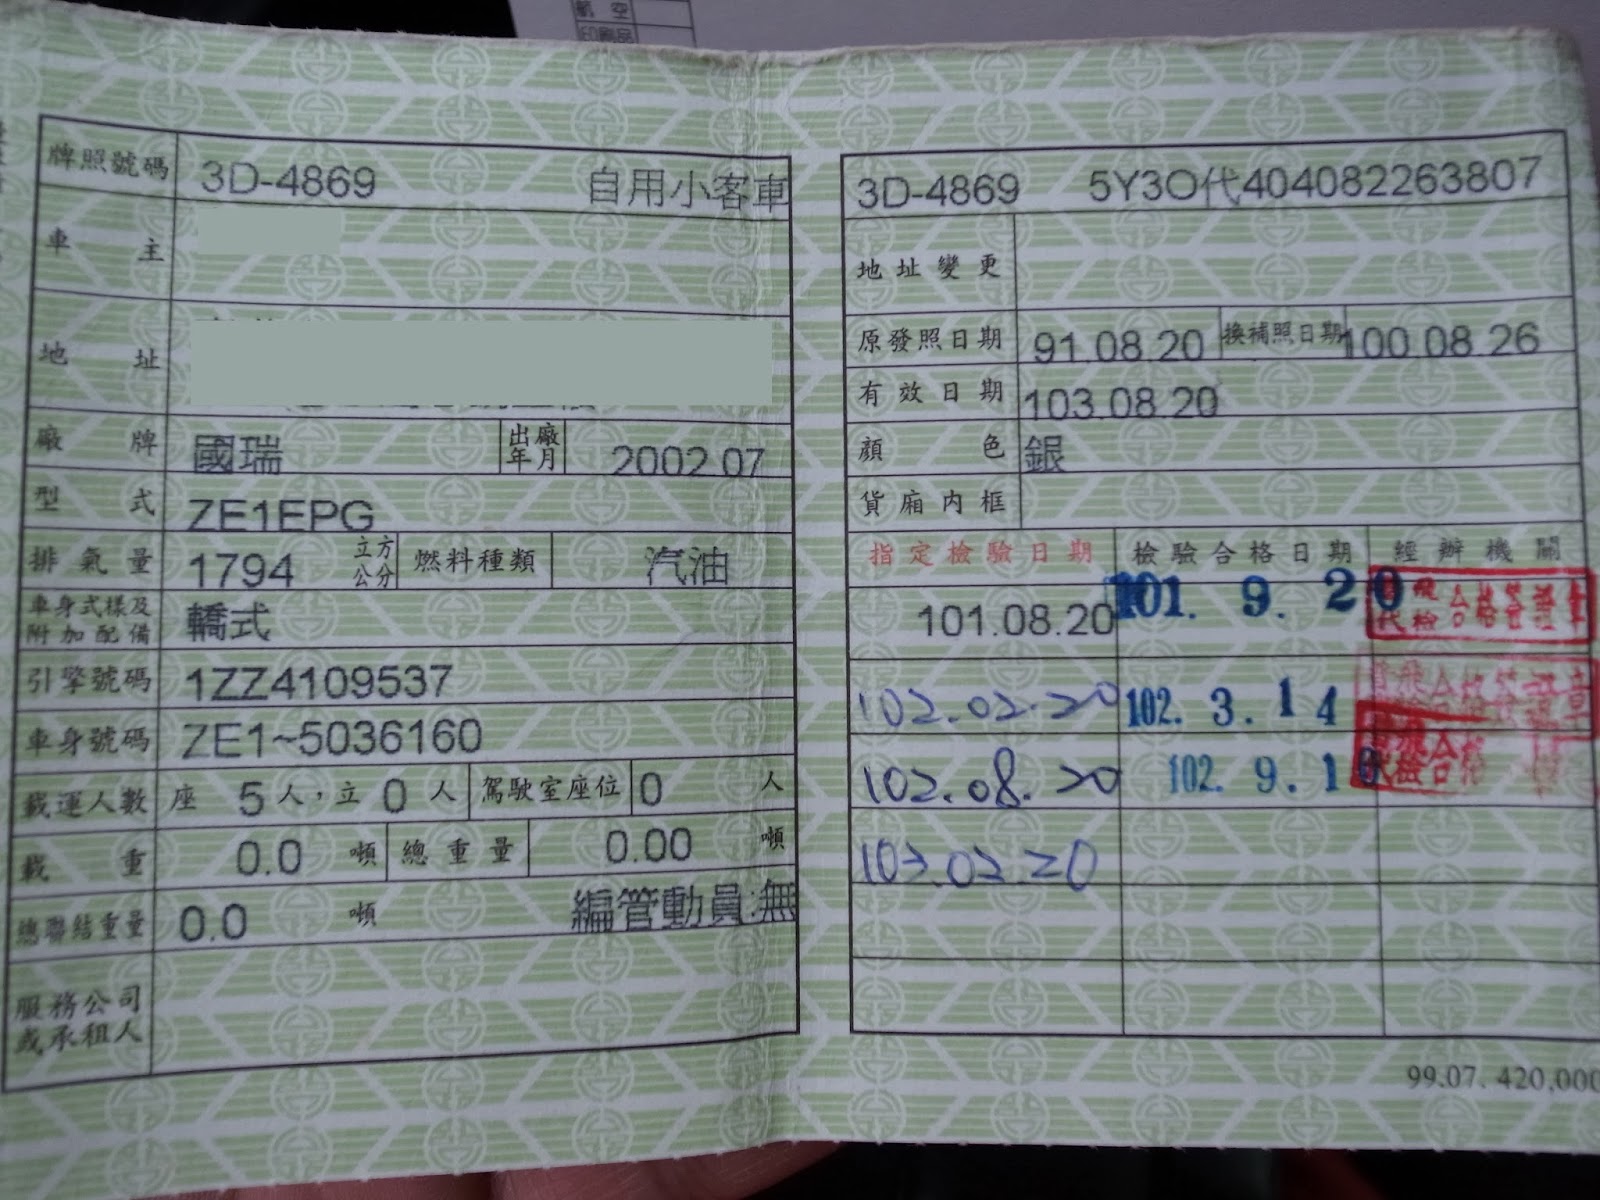 航空
印刷品
牌照號碼 3D-4869 自用小客車
車主
地址
廠牌 國瑞 出廠年月 2002.07
型式 ZE1EPG
排氣量 1794 立方公分 燃料種類 汽油
車身式樣及附加配備 轎式
引擎號碼 1ZZ4109537
車身號碼 ZE1~5036160
載運人數 座 5 人,立 0 人 駕駛室座位 0 人
載重 0.0 噸 總重量 0.00 噸
總聯結重量 0.0 噸 編管動員:無
服務公司或承租人
3D-4869 5Y3O代404082263807
地址變更
原發照日期 91.08.20 換補照日期 100.08.26
有效日期 103.08.20
顏色 銀
貨廂內框
指定檢驗日期 檢驗合格日期 經辦機關
101.08.20 101. 9. 20
102.02.20 102. 3. 14
102.08.20 102. 9. 10
103.02.20
99.07. 420,000